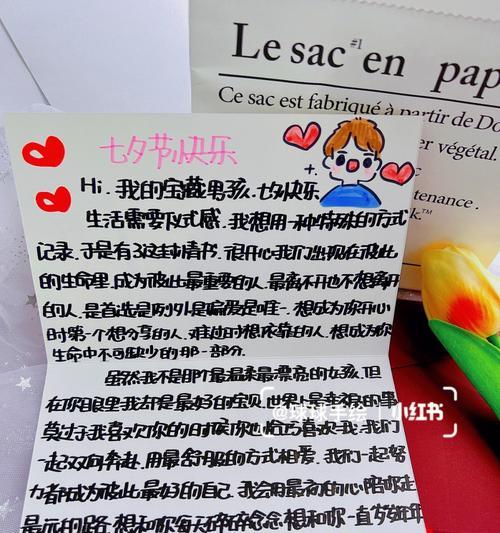 Le sac #1 en pap
Ce sac est fabriqué à partir de Do
her végétal.
ntenance.
k.™
七夕节快乐
Hi.我的宝藏男孩.七夕快乐
生活需要仪式感.我想用一种特殊的方式
记录.于是有了这封情书.很开心我们出现在彼此
的生命里.成为彼此最重要的人.最离不开也不想离开
的人.是首选是例外是偏爱是唯一.想成为你开心
时第一个想分享的人.难过时想依靠的人.想成为你
生命中不可缺少的那一部分.
虽然我不是那个最温柔最漂亮的女孩.但
在你眼里我却是最好的宝贝.世界上最幸福的事
莫过于我喜欢你的时候你也恰巧喜欢我.我们
一起双向奔赴.用最舒服的方式相爱.我们一起努
力都成为彼此最好的自己.我会用最初的心陪你走
最远的路.想和你每天碎碎念念想和你一直岁岁年年
@球球手绘 小红书